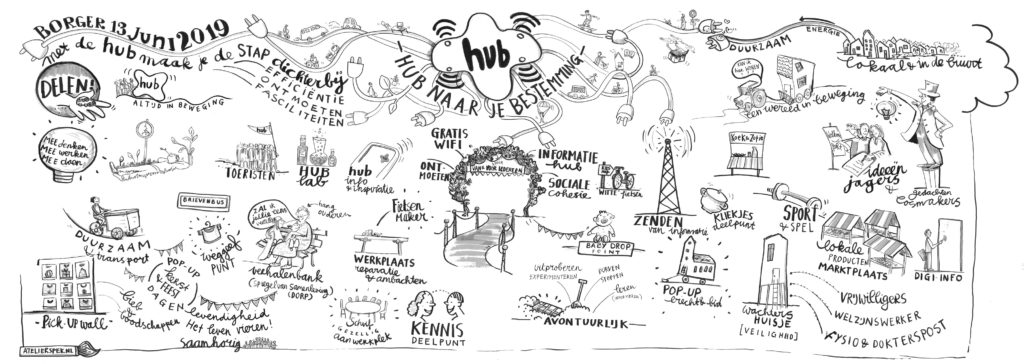 BORGER 13 JUNI 2019
met de hub maak je de STAP dichterbij
EFFICIËNTIE
ONTMOETEN
FACILITEITEN
hub
-HUB NAAR JE BESTEMMING-
DUURZAAM
ENERGIE
lokaal & in de buurt
DELEN!
hub
ALTIJD IN BEWEGING
een wereld in beweging
MEE denken
MEE werken
MEE doen
hub
TOERISTEN
HUB
lab
hub
info
& inspiratie
GRATIS
WIFI
ONT-
MOETEN
INFORMATIE
hub
SOCIALE
cohesie
WITTE-fietsen
ideeën
jagers
&
gedachten
losmakers
DUURZAAM
& transport
BRIEVENBUS
weggeef
PUNT
hang
ouderen
verhalenbank
(spiegel van samenleving)
(DORP)
Fietsen
Maker
WERKPLAATS
reparatie
& ambachten
BABY DROP
POINT
ZENDEN
van informatie
KLIEKJES
deelpunt
SPORT
& SPEL
lokale
PRODUCTEN
MARKTPLAATS
DIGI-INFO
POP-UP
& kerst
FEEST
DAGEN
levendigheid
Het leven vieren!
saamhorig
-Pick-up wall-
boodschappen
GEZELLIG
aan werkplek
KENNIS
DEELPUNT
uitproberen
EXPERIMENTEREN
DURVEN
leren
AVONTUURLIJK
POP-UP
WACHTERS
HUISJE
[VEILIGHEID]
VRIJWILLIGERS
WELZIJNSWERKER
FYSIO & DOKTERSPOST
ATELIERSPEK.NL